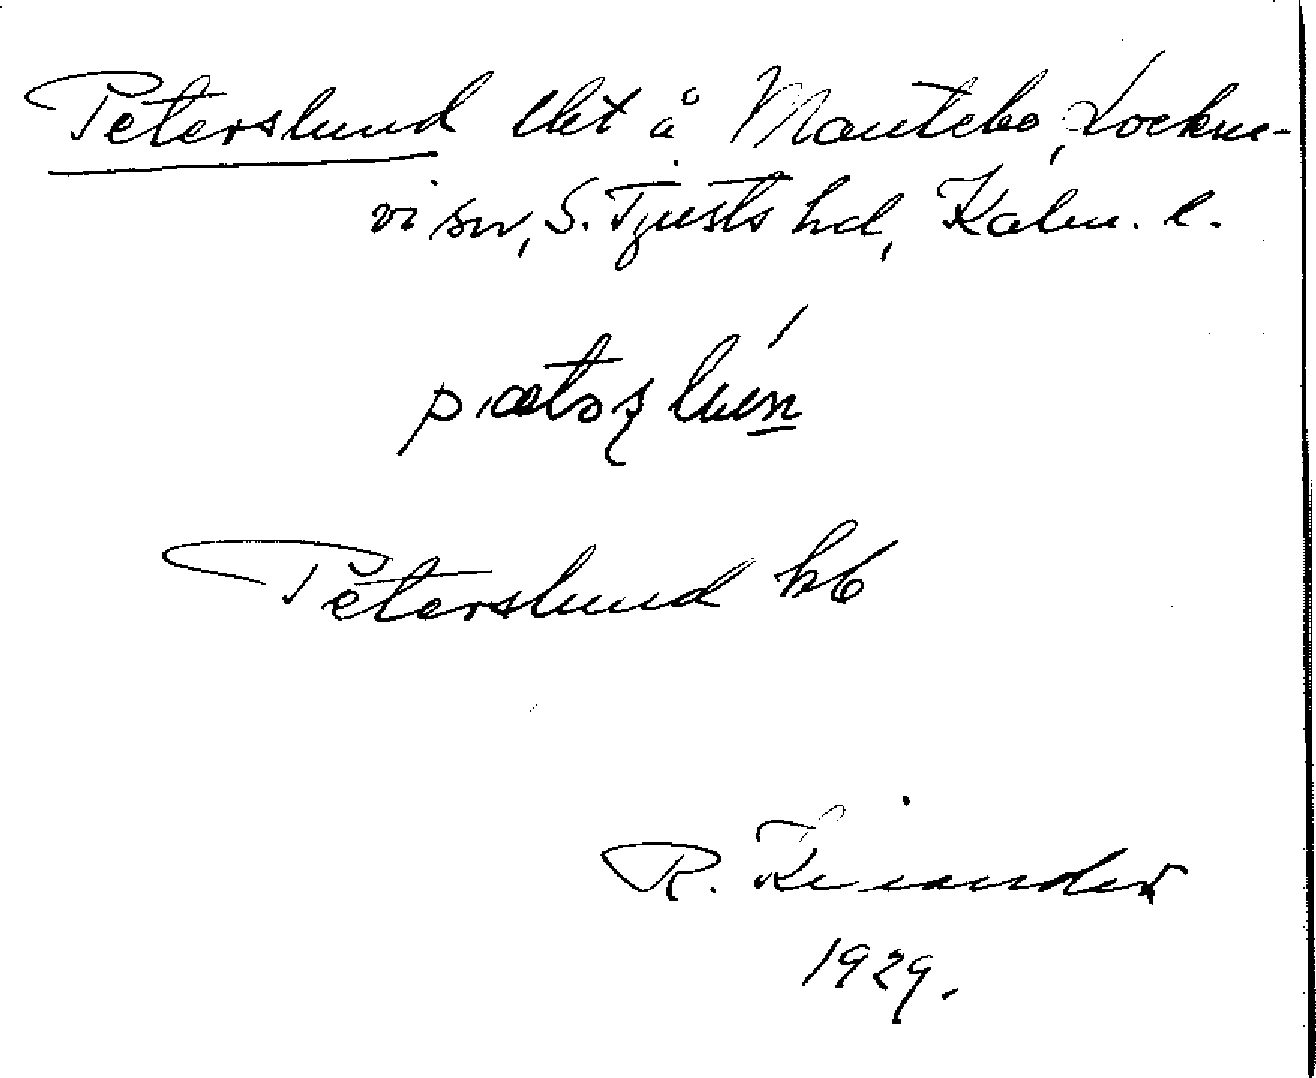 Peterslund lht å Mantebo, Lockne-
vi sn, S. Tjusts hd, Kalm. l.
Peterslund kb
R. Kinander
1929.